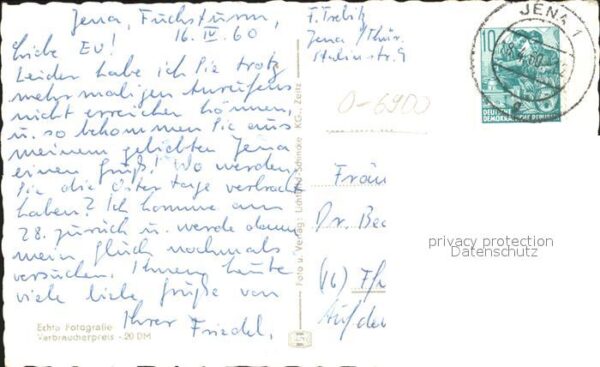 Jena, Fuchsturm,
16. IV. 60
Liebe Ev!
Leider habe ich Sie trotz
mehrmaligen Anrufens
nicht erreichen können,
u. so bekommen Sie aus
meinem geliebten Jena
einen Gruß! Wo werden
Sie die Ostertage verbracht
haben? Ich komme am
28. zurück u. werde dann
mein Glück nochmals
versuchen. Ihnen heute
viele liebe Grüße von
Ihrer Friedel.
Echte Fotografie
Verbraucherpreis -20 DM
Foto u. Verlag: Lichtbild-Schincke KG., Zeitz
F.
Jena / Thür.
Stalinstr. 9
0-6900
JENA 1
18.4.60
10
DEUTSCHE
DEMOKRATISCHE REPUBLIK
Fräu
Dr. Bec
(16) Ff
Auf der
privacy protection
Datenschutz